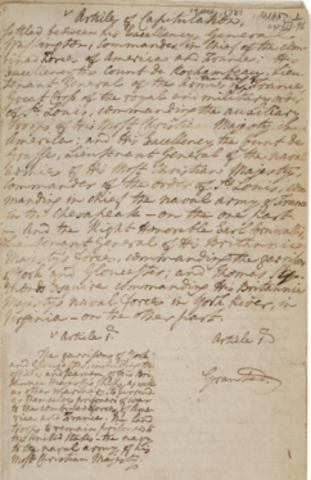 Articles of Capitulation,
settled between his Excellency General
Washington, Commander in Chief of the com-
bined Forces of America and France; His
Excellency the Count de Rochambeau, Lieu-
tenant General of the Armies of France,
Great Cross of the royal and military order
of St. Louis, commanding the auxiliary
troops of His Most Christian Majesty in
America; and His Excellency the Count de
Grasse, Lieutenant General of the naval
Armies of His Most Christian Majesty,
Commander of the order of St. Louis, com-
manding in chief the naval army of France
in the Chesapeake - on the one part -
- And the Right Honorable Earl Cornwallis,
Lieutenant General of His Britannic
Majesty's Forces, commanding the garrisons
of York and Gloucester; and Thomas Sy-
monds Esquire commanding His Britannic
Majesty's naval forces in York River, in
Virginia - on the other part.
Article 1.
Article 1.
The garrisons of York
and Gloucester, including the
officers and seamen of his Bri-
tannic Majesty's Ships, as well
as other mariners, to surrender
themselves prisoners of war
to the combined forces of Ame-
rica and France. The land
troops to remain prisoners to
the United States - the navy
to the naval army of his
Most Christian Majesty.
Granted.